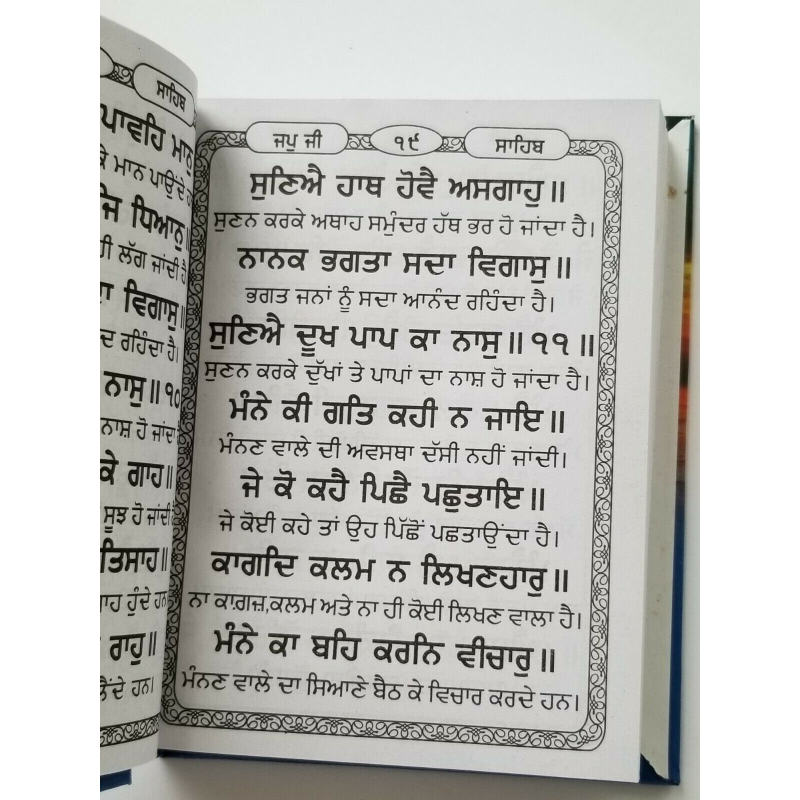 ਸਾਹਿਬ
ਪਾਵਹਿ ਮਾਨੁ
ਕੇ ਮਾਨ ਪਾਉਂਦੇ ਹਨ
ਜਿ ਧਿਆਨੁ
ਹੀ ਲੱਗ ਜਾਂਦੀ ਹੈ
ਾ ਵਿਗਾਸੁ॥
ਦ ਰਹਿੰਦਾ ਹੈ।
ਨਾਸੁ॥੧੦
ਨਾਸ਼ ਹੋ ਜਾਂਦਾ
ਕੇ ਗਾਹ॥
ਸੂਝ ਹੋ ਜਾਂਦੀ
ਤਿਸਾਹ॥
ਾਹ ਹੁੰਦੇ ਹਨ
ਰਾਹੁ॥
ਲੈਂਦੇ ਹਨ।
ਜਪੁ ਜੀ ੧੯ ਸਾਹਿਬ
ਸੁਣਿਐ ਹਾਥ ਹੋਵੈ ਅਸਗਾਹੁ॥
ਸੁਣਨ ਕਰਕੇ ਅਥਾਹ ਸਮੁੰਦਰ ਹੱਥ ਭਰ ਹੋ ਜਾਂਦਾ ਹੈ।
ਨਾਨਕ ਭਗਤਾ ਸਦਾ ਵਿਗਾਸੁ॥
ਭਗਤ ਜਨਾਂ ਨੂੰ ਸਦਾ ਆਨੰਦ ਰਹਿੰਦਾ ਹੈ।
ਸੁਣਿਐ ਦੂਖ ਪਾਪ ਕਾ ਨਾਸੁ॥੧੧॥
ਸੁਣਨ ਕਰਕੇ ਦੁੱਖਾਂ ਤੇ ਪਾਪਾਂ ਦਾ ਨਾਸ਼ ਹੋ ਜਾਂਦਾ ਹੈ।
ਮੰਨੇ ਕੀ ਗਤਿ ਕਹੀ ਨ ਜਾਇ॥
ਮੰਨਣ ਵਾਲੇ ਦੀ ਅਵਸਥਾ ਦੱਸੀ ਨਹੀਂ ਜਾਂਦੀ।
ਜੇ ਕੋ ਕਹੈ ਪਿਛੈ ਪਛੁਤਾਇ॥
ਜੇ ਕੋਈ ਕਹੇ ਤਾਂ ਉਹ ਪਿੱਛੋਂ ਪਛਤਾਉਂਦਾ ਹੈ।
ਕਾਗਦਿ ਕਲਮ ਨ ਲਿਖਣਹਾਰੁ॥
ਨਾ ਕਾਗਜ਼,ਕਲਮ ਅਤੇ ਨਾ ਹੀ ਕੋਈ ਲਿਖਣ ਵਾਲਾ ਹੈ।
ਮੰਨੇ ਕਾ ਬਹਿ ਕਰਨਿ ਵੀਚਾਰੁ॥
ਮੰਨਣ ਵਾਲੇ ਦਾ ਸਿਆਣੇ ਬੈਠ ਕੇ ਵਿਚਾਰ ਕਰਦੇ ਹਨ।